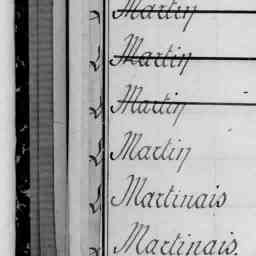 Martin
Martin
Martin
Martin
Martinais
Martinais